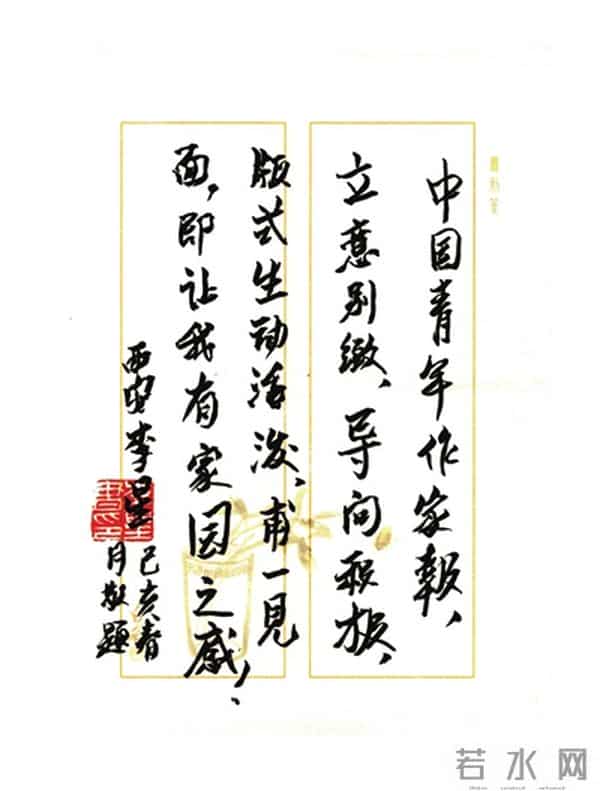 中国青年作家報、
立意别緻、导向积极、
版式生动活泼、甫一見
面，即让我有家园之感，、
西安李星
己亥春
月敬題
若水网